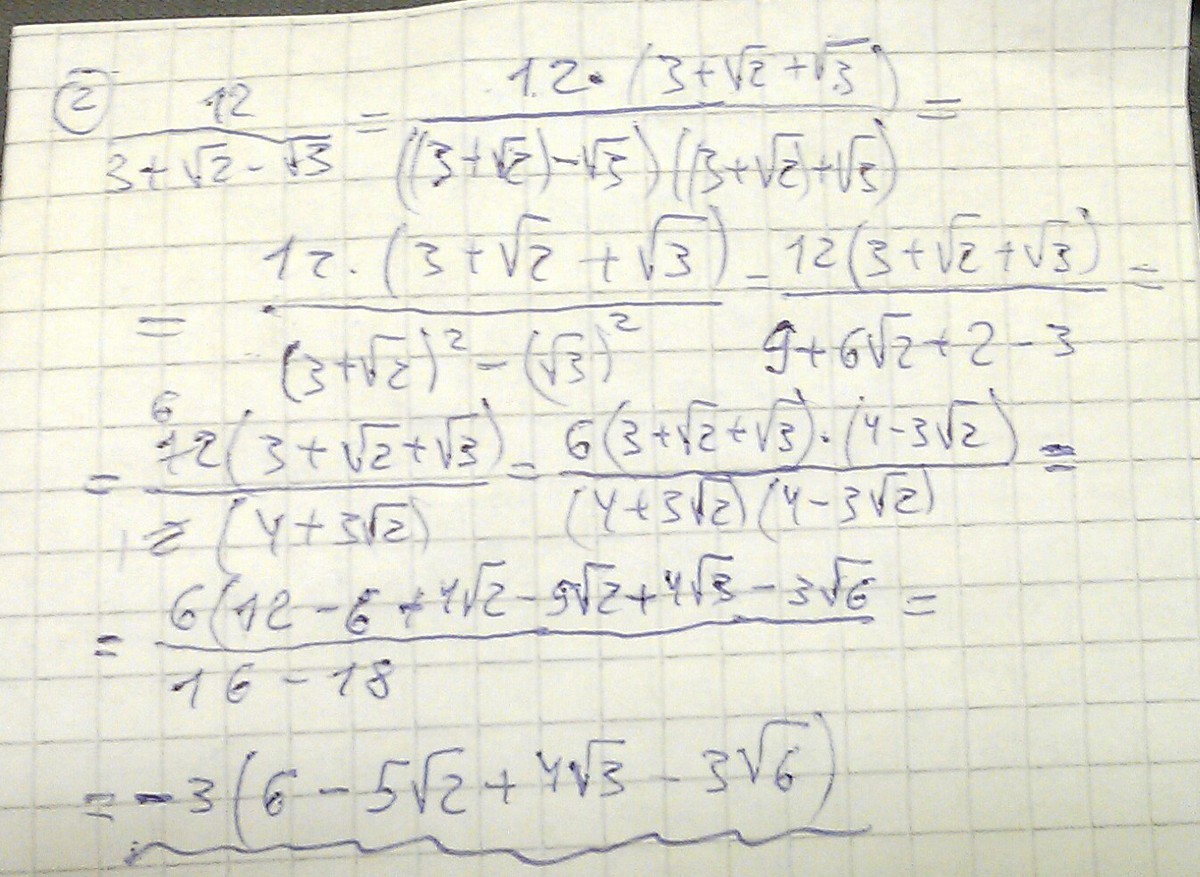 ② 12/(3+√2-√3) = 12·(3+√2+√3)/(((3+√2)-√3)((3+√2)+√3)) =
= 12·(3+√2+√3)/((3+√2)²-(√3)²) = 12(3+√2+√3)/(9+6√2+2-3) =
= 12(3+√2+√3)/(2(4+3√2)) = 6(3+√2+√3)·(4-3√2)/((4+3√2)(4-3√2)) =
= 6(12-6+4√2-9√2+4√3-3√6/(16-18) =
= -3(6-5√2+4√3-3√6)